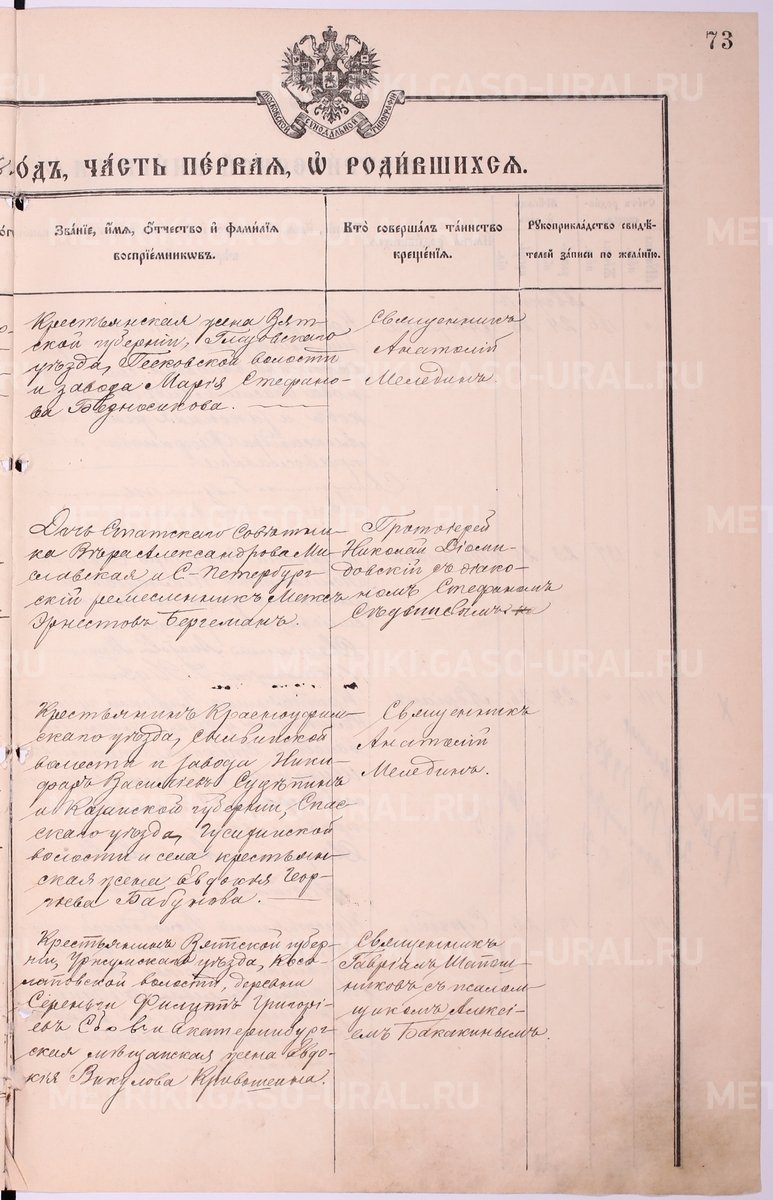 73
МОСКОВСКОЙ СѴНОДАЛЬНОЙ ТИПОГРАФІИ
О́ДЪ, ЧА́СТЬ ПЕ́РВАЯ, Ѡ҆ РОДИ́ВШИХСЯ.
Зва́нїе, и҆́мя, ѻ҆́тчество и҆ фами́лїя
воспрїе́мниковъ.
Кто̀ соверша́лъ та́инство
креще́нїя.
Рꙋкоприкла́дство свидѣ́-
телей за́писи по жела́нїю.
Крестьянская жена Вят-
ской губерніи, Глазовскаго
уѣзда, Песковской волости
и завода Марія Стефано-
ва Бѣдносикова.
Священникъ
Анатолій
Мелединъ.
Дочь Статскаго Совѣтни-
ка Вѣра Александрова Ми-
славская и С-Петербург-
скій ремесленникъ Максъ
Эрнестовъ Бергеманъ.
Протоіерей
Николай Діоми-
довскій съ діако-
номъ Стефаномъ
Крестьянинъ Красноуфим-
скаго уѣзда, Сылвинской
волости и завода Ники-
форъ Васильевъ
и Казанской губерніи, Спас-
скаго уѣзда,
волости и села крестьян-
ская жена Евдокія Геор-
гіева Бабунова.
Священникъ
Анатолій
Мелединъ.
Крестьянинъ Вятской губер-
ніи, Уржумскаго уѣзда, Косо-
лаповской волости, деревни
Филиппъ Григорі-
евъ и Екатеринбург-
ская мѣщанская жена Евдо-
кія Викулова Кривошеина.
Священникъ
Гавріилъ Шапош-
никовъ съ псалом-
щикомъ Алексі-
емъ Бакакинымъ.
METRIKI.GASO-URAL.RU